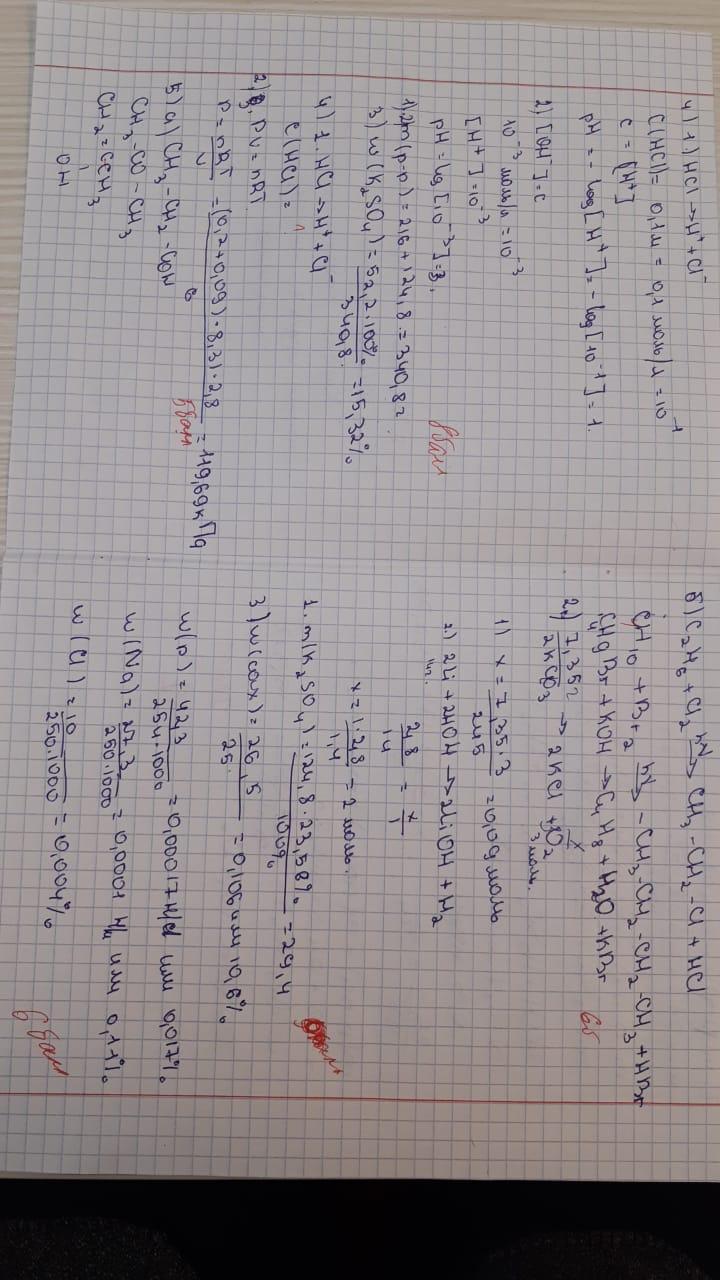 4) 1) HCl → H⁺ + Cl⁻
C(HCl) = 0,1 м = 0,1 моль/л = 10⁻¹
C = [H⁺]
pH = - log [H⁺] = - log [10⁻¹] = 1.
2) [OH⁻] = C
10⁻³ моль/л = 10⁻³
[H⁺] = 10⁻³
pH = log [10⁻³] = 3.
m(p-p) = 216 + 124,8 = 340,8 г
3) w(K₂SO₄) = 52,2 · 100% / 340,8 = 15,32%
4) 1. HCl → H⁺ + Cl⁻
C(HCl) =
PV = nRT
P = nRT / V = (0,2 + 0,09) · 8,31 · 2,8 = 119,69 кПа
5) a) CH₃ - CH₂ - COH
CH₃ - CO - CH₃
CH₂ = CCH₃
OH
б) C₂H₆ + Cl₂ hν→ CH₃ - CH₂ - Cl + HCl
C₄H₁₀ + Br₂ hν→ - CH₃ - CH₂ - CH₂ - CH₃ + HBr
C₄H₉Br + KOH → C₄H₈ + H₂O + KBr
6б
7,35 г x
2KClO₃ → 2KCl + 3O₂
3 моль.
1) x = 7,35 · 3 / 245 = 0,09 моль
2) 2Li + 2HOH → 2LiOH + H₂
28 / 14 = x / 1
x = 1 · 28 / 14 = 2 моль.
1. m(K₂SO₄) = 124,8 · 23,58% / 100% = 29,4
3) w(сах) = 26,5 / 25 = 0,106 или 10,6%
w(p) = 42,3 / 254 · 1000 = 0,00017 или 0,017%
w(Na) = 27,3 / 250 · 1000 = 0,0001 или 0,11%
w(Cl) = 10 / 250 · 1000 = 0,004%
6 балл